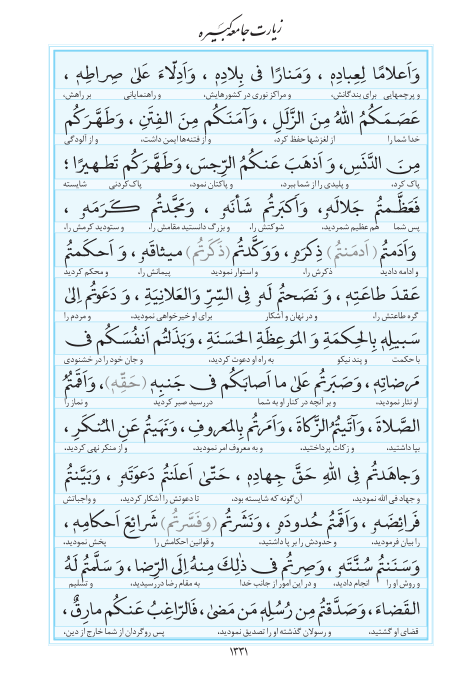 زیارت جامعه کبیره
وَاَعلامًا لِعِبادِهِ ، وَمَنارًا فی بِلادِهِ ، وَاَدِلّاءَ عَلیٰ صِراطِهِ ،
و پرچمهایی برای بندگانش، و مراکز نوری در کشورهایش، و راهنمایانی بر راهش،
عَصَمَکُمُ اللهُ مِنَ الزَّلَلِ ، وَآمَنَکُم مِنَ الفِتَنِ ، وَطَهَّرَکُم
خدا شما را از لغزشها حفظ کرد، و از فتنه‌ها ایمن داشت، و از آلودگی
مِنَ الدَّنَسِ، وَ اَذهَبَ عَنکُمُ الرِّجسَ، وَطَهَّرَکُم تَطـهیرًا ؛
پاک کرد، و پلیدی را از شما ببرد، و پاکتان نمود، پاک‌کردنی شایسته
فَعَظَّمتُم جَلالَهُ، وَاَکبَرتُم شَأنَهُ ، وَمَجَّدتُم کَـرَمَهُ ،
پس شما هم عظیم شمردید، شوکتش را، و بزرگ دانستید مقامش را، و ستودید کرمش را،
وَاَدَمتُم (اَدمَنتُم) ذِکرَهُ ، وَوَکَّدتُم (ذَکَّرتُم) میـثاقَهُ ، وَ اَحکَمتُم
و ادامه دادید ذکرش را، و استوار نمودید پیمانش را، و محکم کردید
عَقدَ طاعَتِهِ ، وَ نَصَحتُم لَهُ فِی السِّرِّ وَالعَلانِیَةِ ، وَ دَعَوتُم اِلیٰ
گره طاعتش را، و در نهان و آشکار برای او خیرخواهی نمودید، و مردم را
سَبیلِهِ بِالحِکمَةِ وَ المَوعِظَةِ الحَسَنَةِ ، وَبَذَلتُم اَنفُسَکُم فی
با حکمت و پند نیکو به راه او دعوت کردید، و جان خود را در خشنودی
مَرضاتِهِ، وَصَبَرتُم عَلیٰ ما اَصابَکُم فی جَنبِهِ (حَقِّهِ)، وَ اَقَمتُمُ
او نثار نمودید، و بر آنچه در کنار او به شما دررسید صبر کردید و نماز را
الصَّلاةَ، وَآتَیتُمُ الزَّکاةَ، وَاَمَرتُم بِالمَعروفِ، وَنَهَیتُم عَنِ المُنکَرِ ،
بپا داشتید، و زکات پرداختید، و به معروف امر نمودید، و از منکر نهی کردید،
وَجاهَدتُم فِی اللهِ حَقَّ جِهادِهِ ، حَتّیٰ اَعلَنتُم دَعوَتَهُ ، وَبَیَّنتُم
و جهاد فی الله نمودید، آن‌گونه که شایسته بود، تا دعوتش را آشکار کردید، و واجباتش
فَرائِضَهُ ، وَاَقَمتُم حُدودَهُ ، وَنَشَرتُم (وَفَسَّرتُم) شَرائِعَ اَحکامِهِ ،
را بیان فرمودید، و حدودش را بر پا داشتید، و قوانین احکامش را پخش نمودید،
وَسَنَنتُم سُنَّتَهُ ، وَصِرتُم فی ذٰلِکَ مِنهُ اِلَی الرِّضا، وَ سَلَّمتُم لَهُ
و روش او را انجام دادید، و در این امور از جانب خدا به مقام رضا دررسیدید، و تسلیم
القَضاءَ، وَصَدَّقتُم مِن رُسُلِهِ مَن مَضیٰ، فَالرّاغِبُ عَنکُم مارِقٌ ،
قضای او گشتید، و رسولان گذشته او را تصدیق نمودید، پس روگردان از شما خارج از دین،
۱۳۳۱